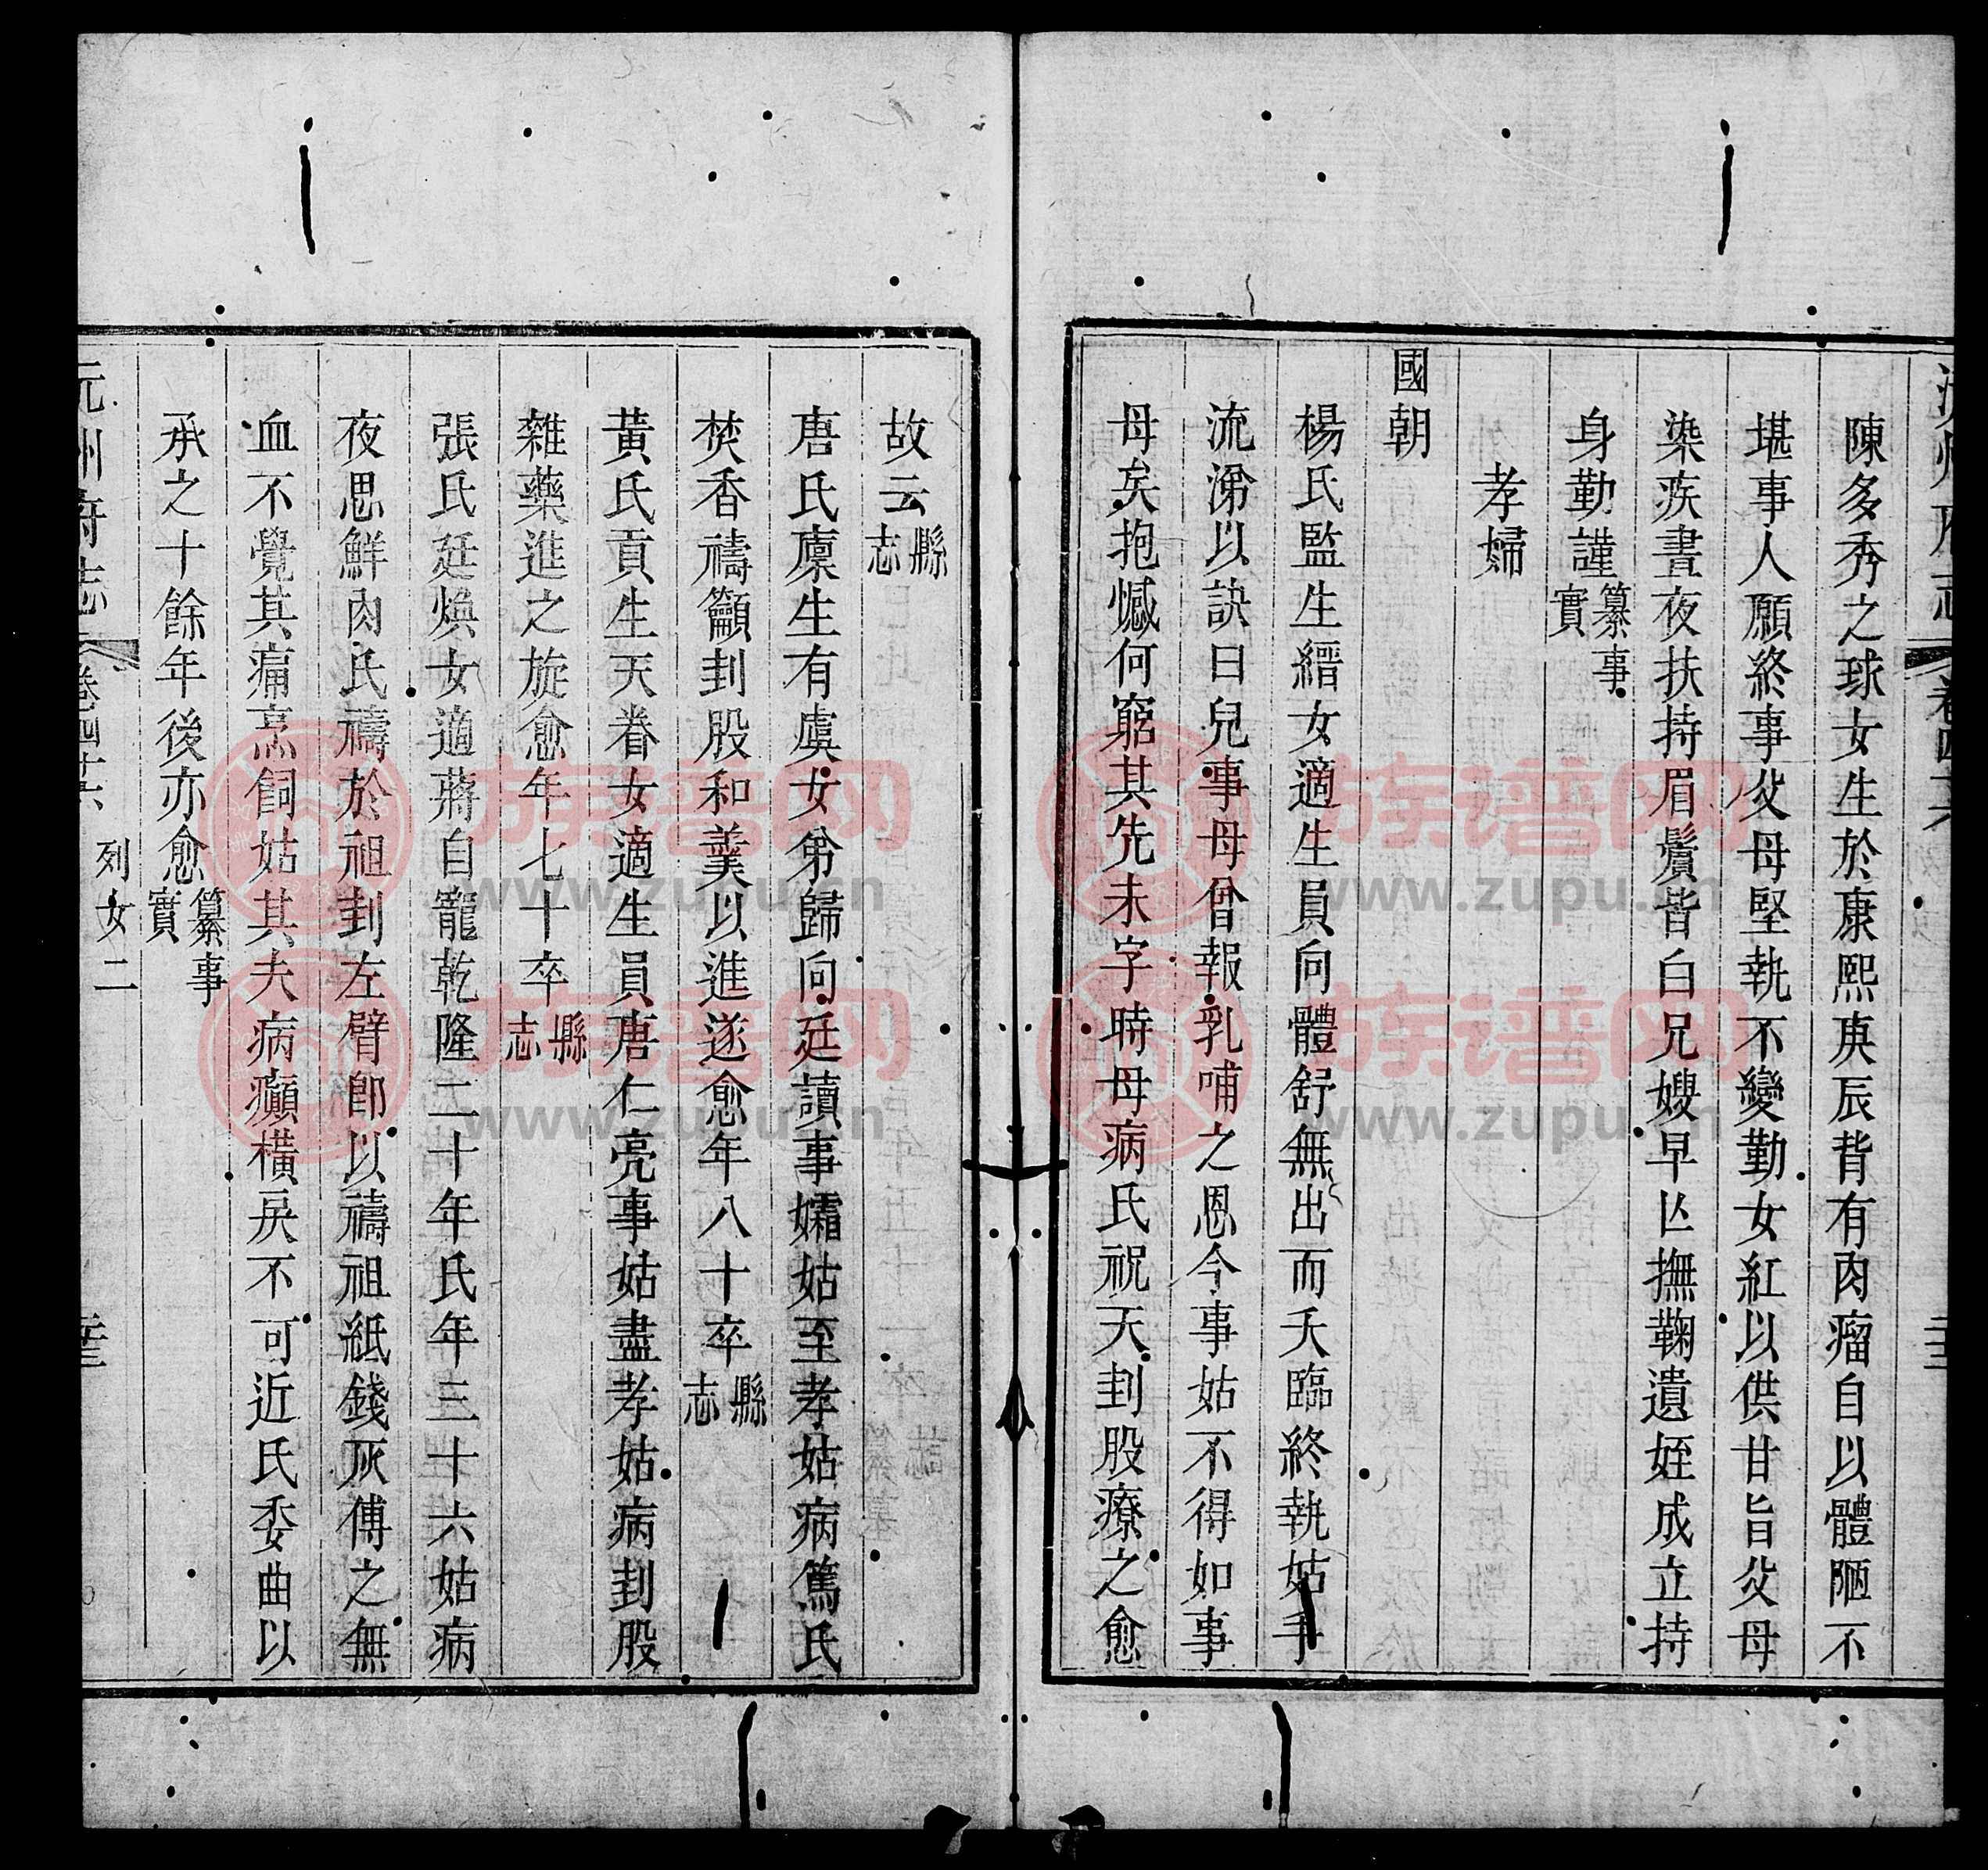 陳多秀之球女生於康熙庚辰背有肉瘤自以體陋不
堪事人願終事父母堅執不變勤女紅以供甘旨父母
染疾晝夜扶持眉鬢皆白兄嫂早亡撫鞠遺姪成立持
身勤謹纂事實
孝婦
國朝
楊氏監生縉女適生員向體舒無出而夭臨終執姑手
流涕以訣曰兒事母曾報乳哺之恩今事姑不得如事
母矣抱憾何窮其先未字時母病氏祝天刲股療之愈
故云縣志
唐氏廩生有虞女弟歸向廷讀事孀姑至孝姑病篤氏
焚香禱籲刲股和羹以進遂愈年八十卒縣志
黃氏貢生天眷女適生員唐仁亮事姑盡孝姑病刲股
雜藥進之旋愈年七十卒縣志
張氏廷煥女適蔣自寵乾隆二十年氏年三十六姑病
夜思鮮肉氏禱於祖刲左臂卽以禱祖紙錢灰傅之無
血不覺其痛烹飼姑其夫病癲橫戾不可近氏委曲以
承之十餘年後亦愈纂事實
沅州府志 卷四十六 列女二
族谱网
www.zupu.cn
族谱网
www.zupu.cn
族谱网
www.zupu.cn
族谱网
www.zupu.cn